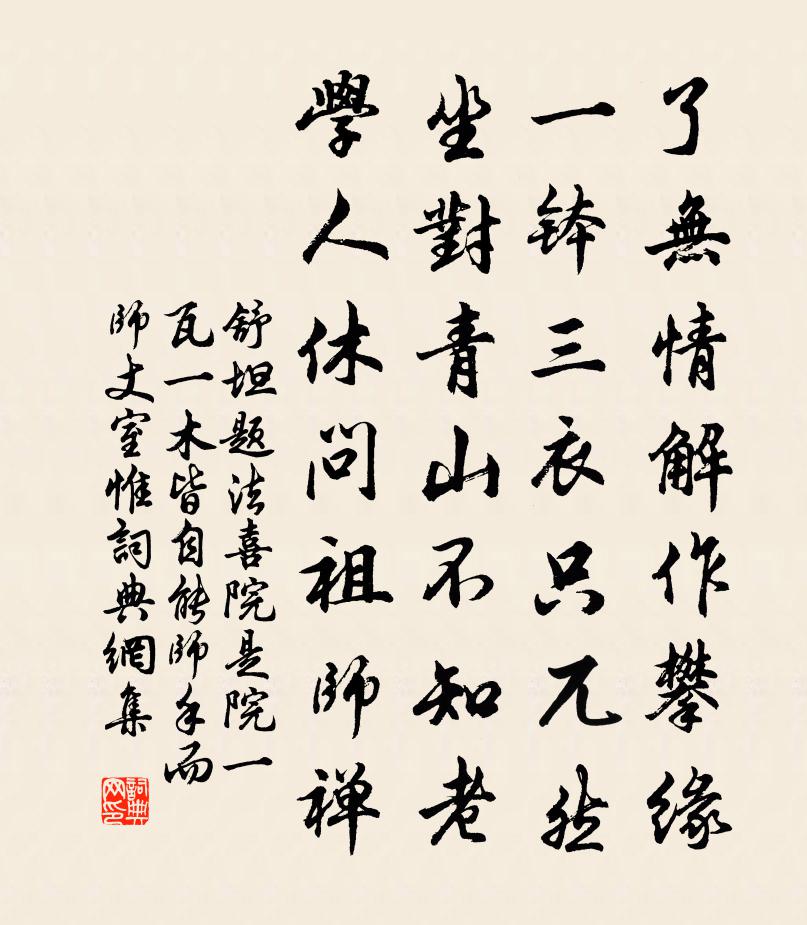 了無情解作攀緣
一钵三衣只兀然
坐對青山不知老
學人休问祖師禅
舒坦题法喜院是院一
瓦一木皆自能師手而
師丈室惟詞典網集
詞典网印